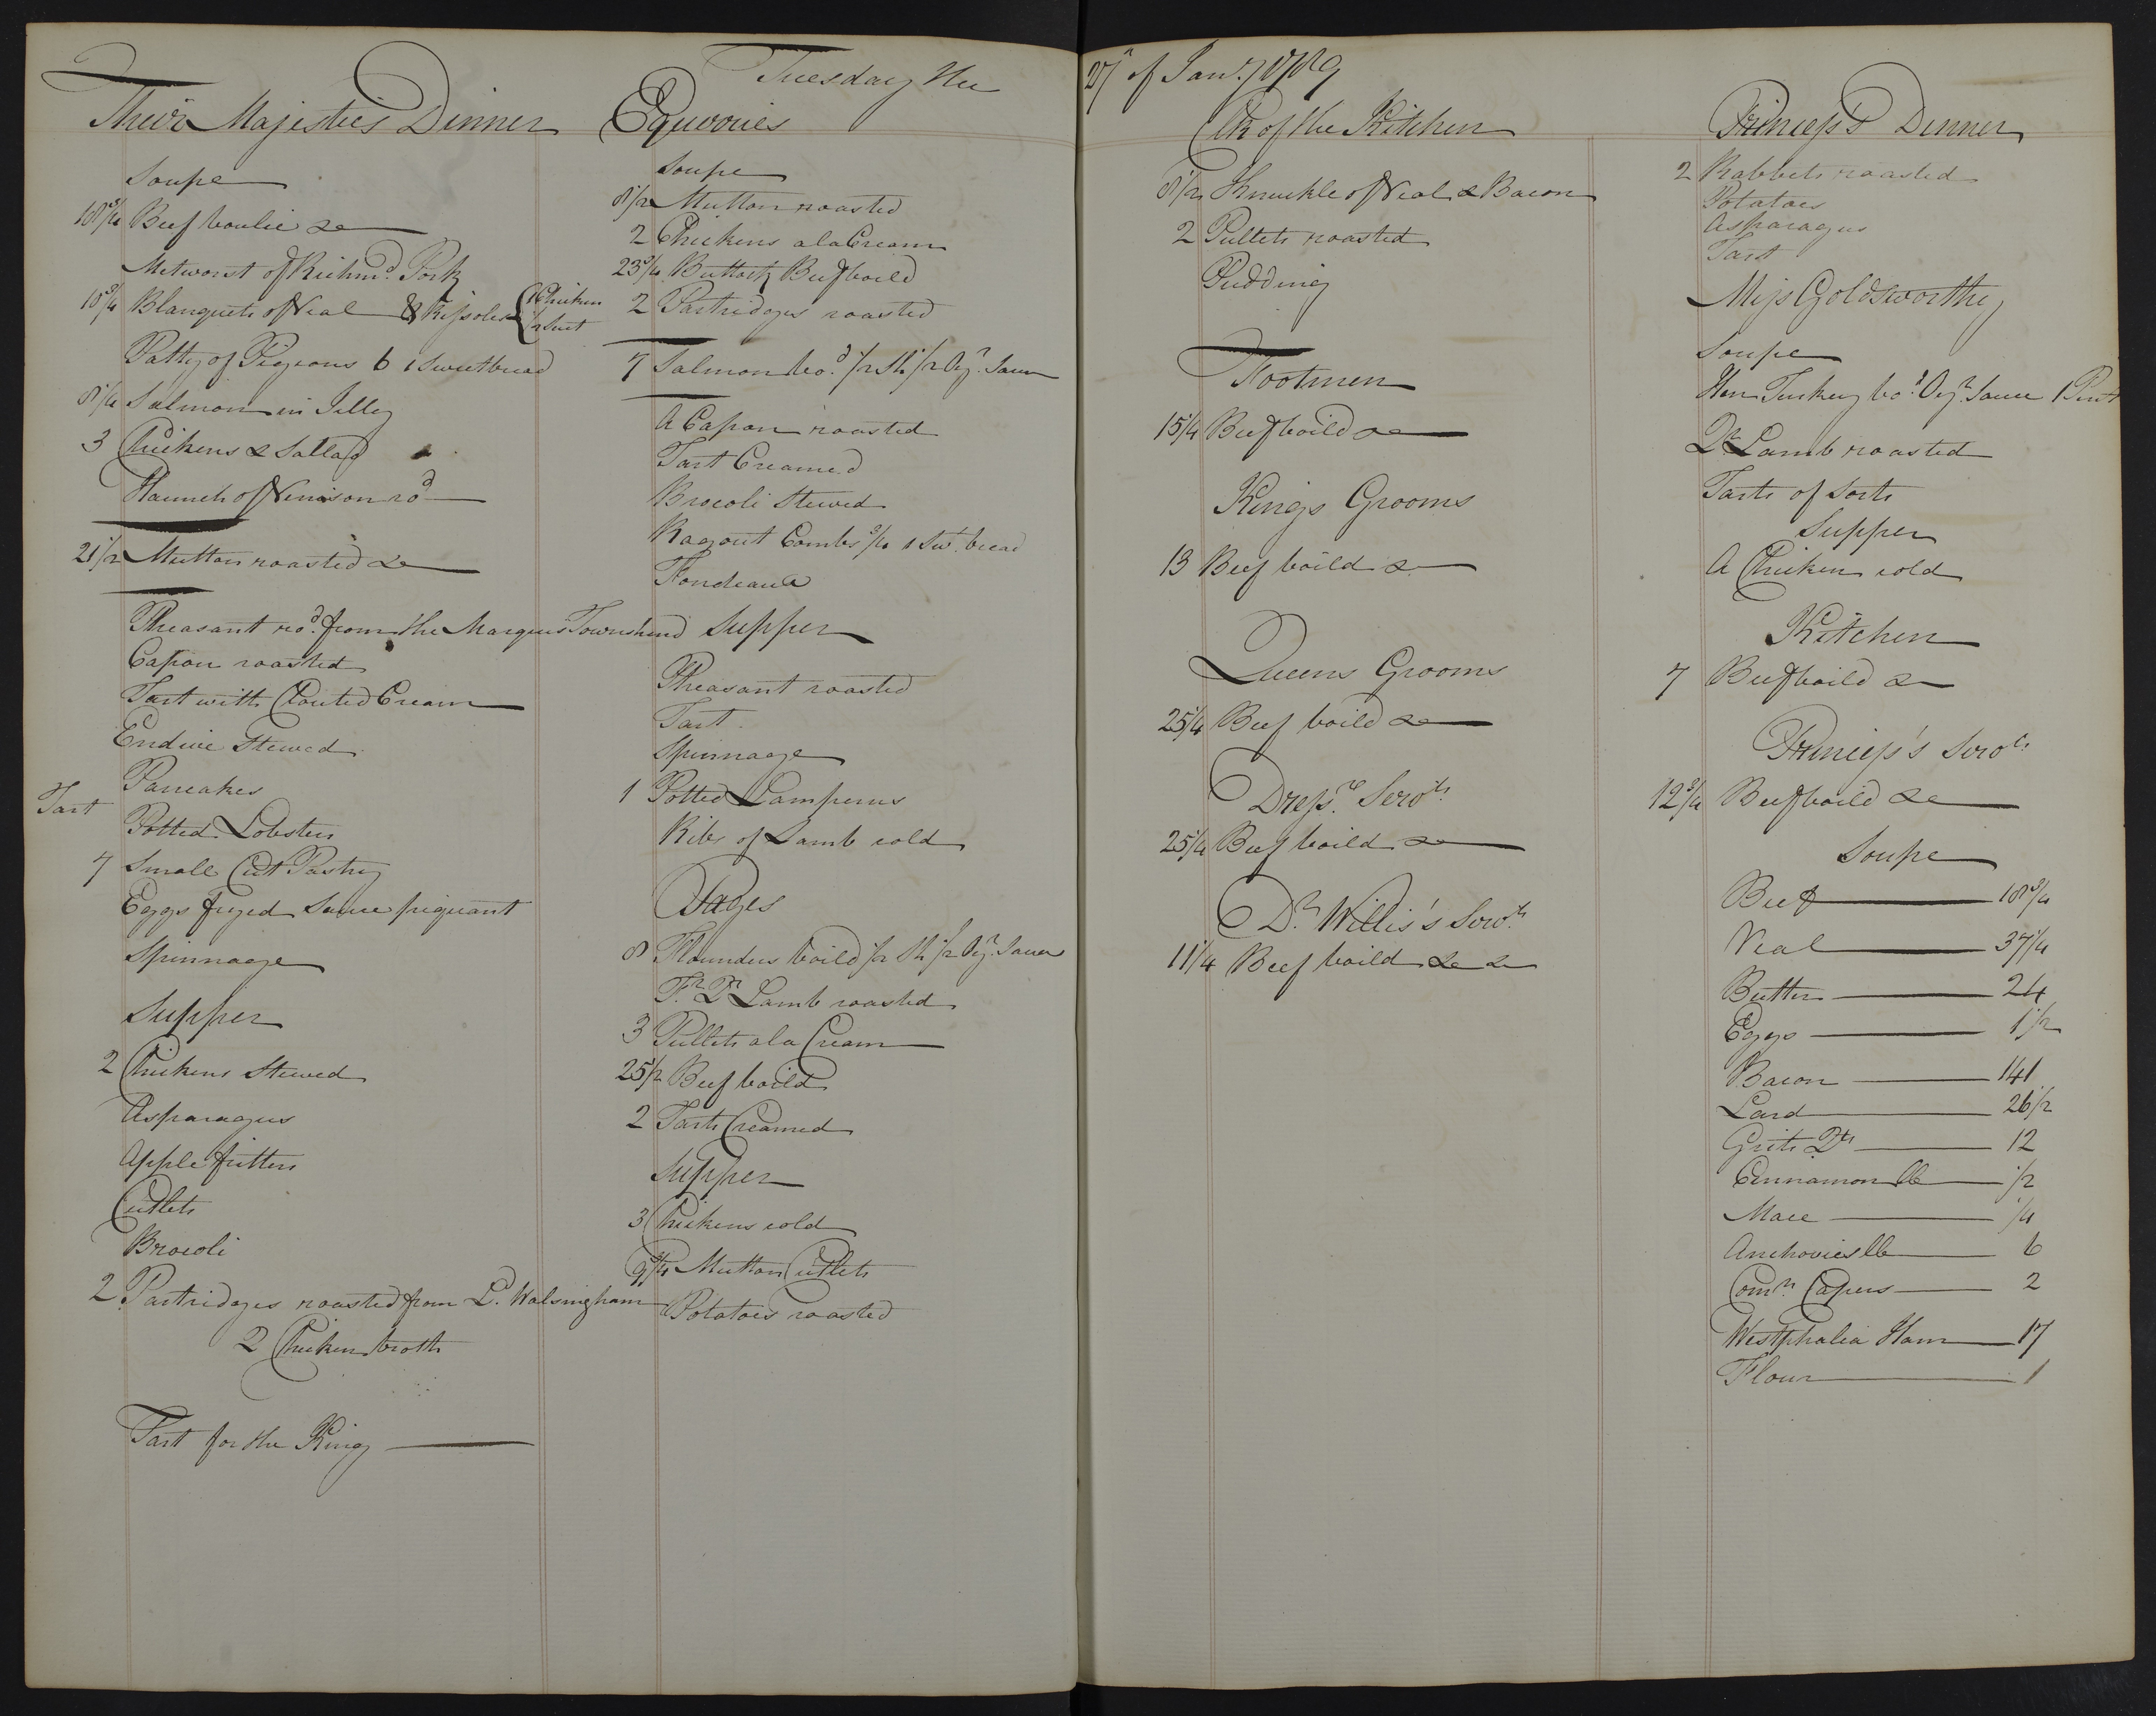 Tuesday the 27th of Jany 1789
Their Majesties Dinner
Soupe
18 3/4 Beef boulie &c
Metworst of Richmd. Pork
10 3/4 Blanquets of Veal & Rissoles 1 Chicken
1/2 Suet
Patty of Pigeons 6 1 Sweetbread
8 1/4 Salmon in Jelly
3 Chickens & Sallad
Haunch of Venison rod
21 1/2 Mutton roasted &c
Pheasant rod. from the Marquis Townshend
Capon roasted
Tart with Clouted Cream
Endive Stewed
Pancakes
Tart
Potted Lobsters
7 Small Cut Pastry
Eggs fryed Sauce piquant
Spinnage
Supper
2 Chickens Stewed
Asparagus
Apple fritters
Cutlets
Brocoli
2 Partridges roasted from L. Walsingham
2 Chicken broth
Tart for the King
Equories
Soupe
8 1/2 Mutton roasted
2 Chickens a la Cream
23 3/4 Buttock Beef boild
2 Partridges roasted
7 Salmon bod. 1/2 Sh 1/2 Oyr. Sauce
A Capon roasted
Tart Creamed
Brocoli Stewed
Ragout Combs 3/4 1 Swt. bread
Fondeaux
Supper
Pheasant roasted
Tart
Spinnage
1 Potted Lamperns
Ribs of Lamb cold
Pages
8 Flounders boild 1/2 Sh 1/2 Oyr. Sauce
Fr. Qr Lamb roasted
3 Pullets a la Cream
25 1/2 Beef boild
2 Tarts Creamed
Supper
3 Chickens cold
9 3/4 Mutton Cutlets
Potatoes roasted
Clk of the Kitchen
8 1/2 Knuckle of Veal & Bacon
2 Pullets roasted
Pudding
Footmen
15 1/4 Beef boild &c
Kings Grooms
13 Beef boild &c
Queens Grooms
25 1/4 Beef boild &c
Dress.rs Servts.
25 1/4 Beef boild &c
Dr. Willis's Servts.
11 1/4 Beef boild &c &c
Princess's Dinner
2 Rabbets roasted
Potatoes
Asparagus
Tart
Miss Goldsworthy
Soupe
Hen Turkey bod. Oyr. Sauce 1 Pint
Qr. Lamb roasted
Tarts of Sorts
Supper
A Chicken cold
Kitchen
7 Beef boild &c
Princess's Servts.
12 3/4 Beef boild &c
Soupe
Beef 18 3/4
Veal 37 1/4
Butter 24
Eggs 1 1/2
Bacon 141
Lard 26 1/2
Grits Qts 12
Cinnamon lb 1/2
Mace 1/4
Anchovies lb 6
Comn. Capers 2
Westphalia Ham 17
Flour 1